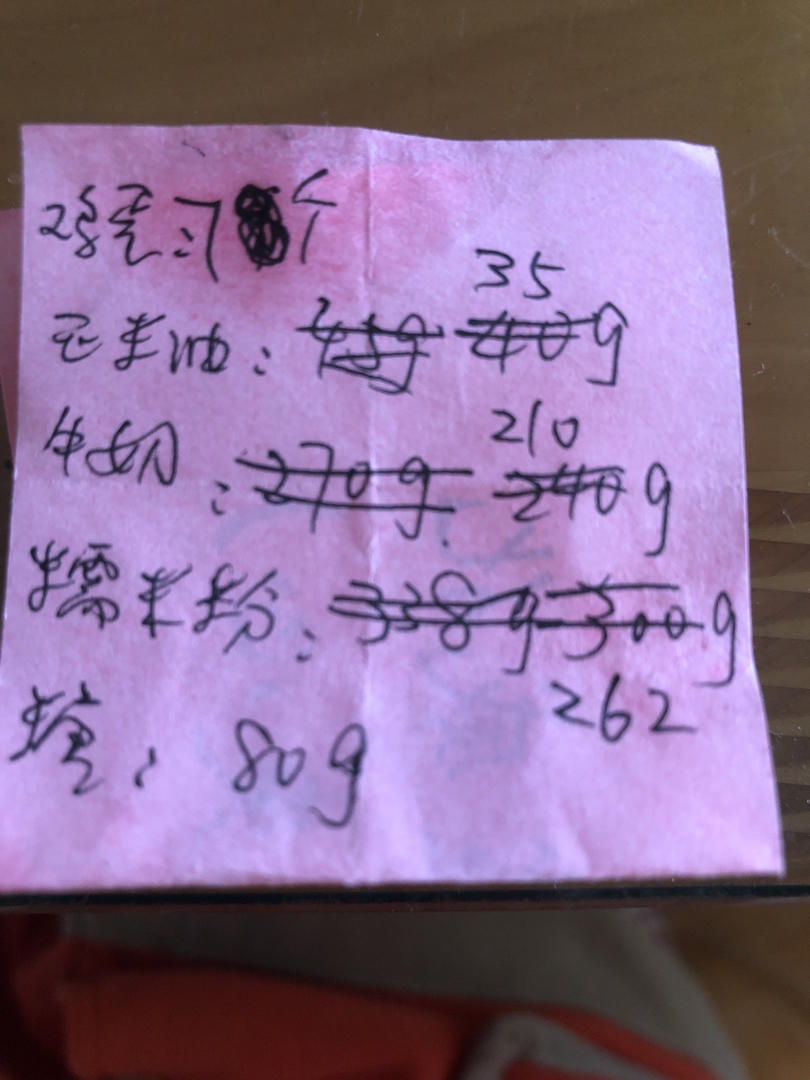 鸡蛋：7个
35
玉米油：45g 40g
210
牛奶：270g 240g
糯米粉：338g 300g
262
糖：80g